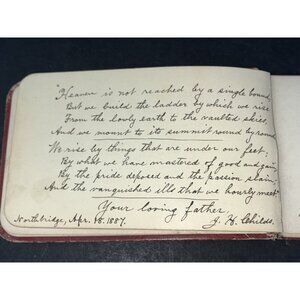 "Heaven is not reached by a single bound
But we build the ladder by which we rise
From the lowly earth to the vaulted skies
And we mount to its summit round by round
We rise by things that are under our feet;
By what we have mastered of good and gain
By the pride deposed and the passion slain
And the vanquished ills that we hourly meet"
Your loving father,
Northbridge, Apr. 18. 1887. J. H. Childs.